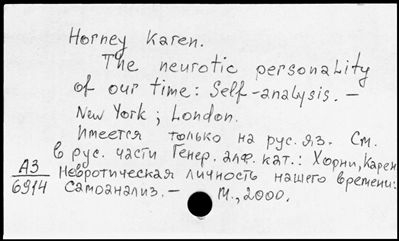 Horney Karen.
The neurotic personality
of our time: Self-analysis. –
New York ; London.
Имеется только на рус. яз. См.
в рус. части Генер. алф. кат.: Хорни, Карен
А3 Невротическая личность нашего времени:
6914 Самоанализ. – М., 2000.